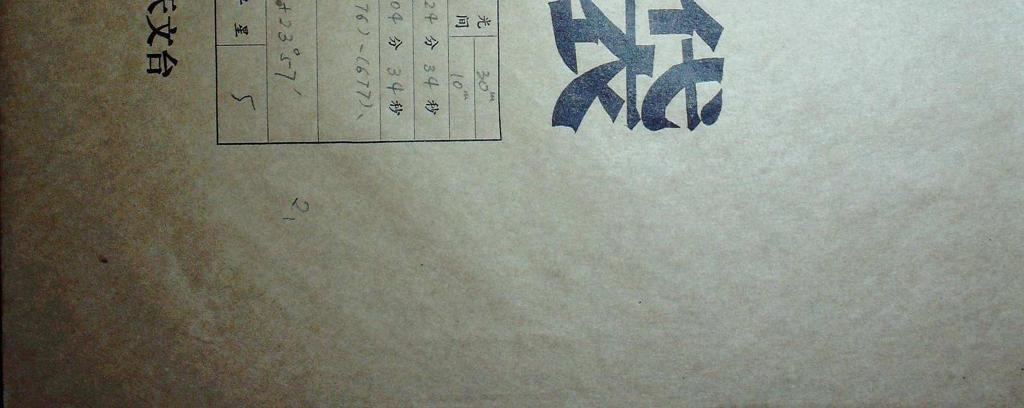 袋
光 30ᵐ
间 10ᵐ
24 分 34 秒
04 分 34 秒
76)-(677)、
+23°57′
星 5
21
天文台